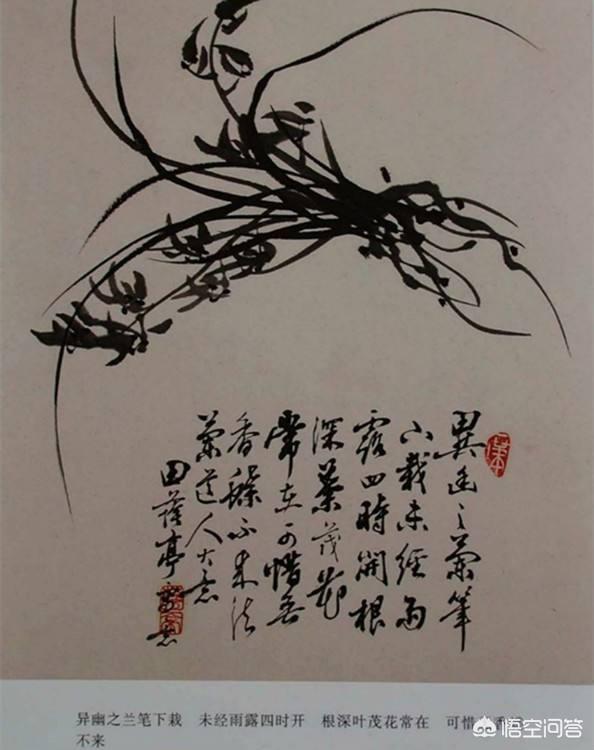 異幽之蘭筆
下栽未經雨
露四時開根
深葉茂花
常在可惜無
香蝶不來法
蘭道人大意
田 亭
异幽之兰笔下栽 未经雨露四时开 根深叶茂花常在 可惜
不来
悟空问答